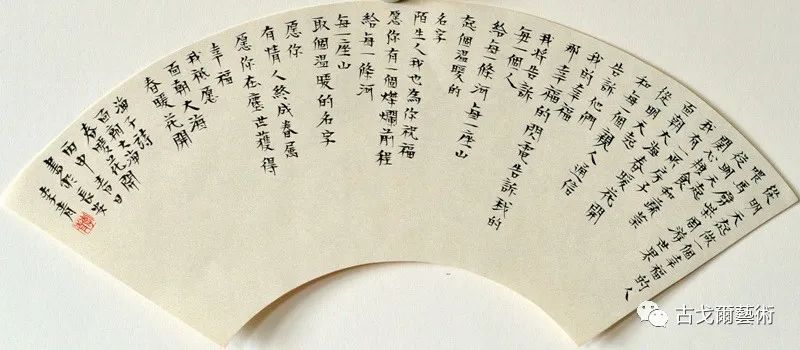 從明天起做一個幸福的人
喂馬劈柴周游世界
從明天起
關心糧食和蔬菜
我有一所房子
面朝大海春暖花開
從明天起
和每一個親人通信
告訴他們
我的幸福
那幸福的閃電告訴我的
我將告訴
每一個人
給每一條河每一座山
起個溫暖的
名字
陌生人我也為你祝福
愿你有一個燦爛前程
給每一條河
每一座山
取個溫暖的名字
愿你
有情人終成眷属
愿你在塵世獲得
幸福
我祇愿
面朝大海
春暖花開
海子詩
面朝大海
春暖花開
丙申
書於長安
李青
古戈爾藝術